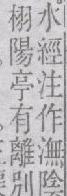 水經注作潕陰
栩陽亭有離別